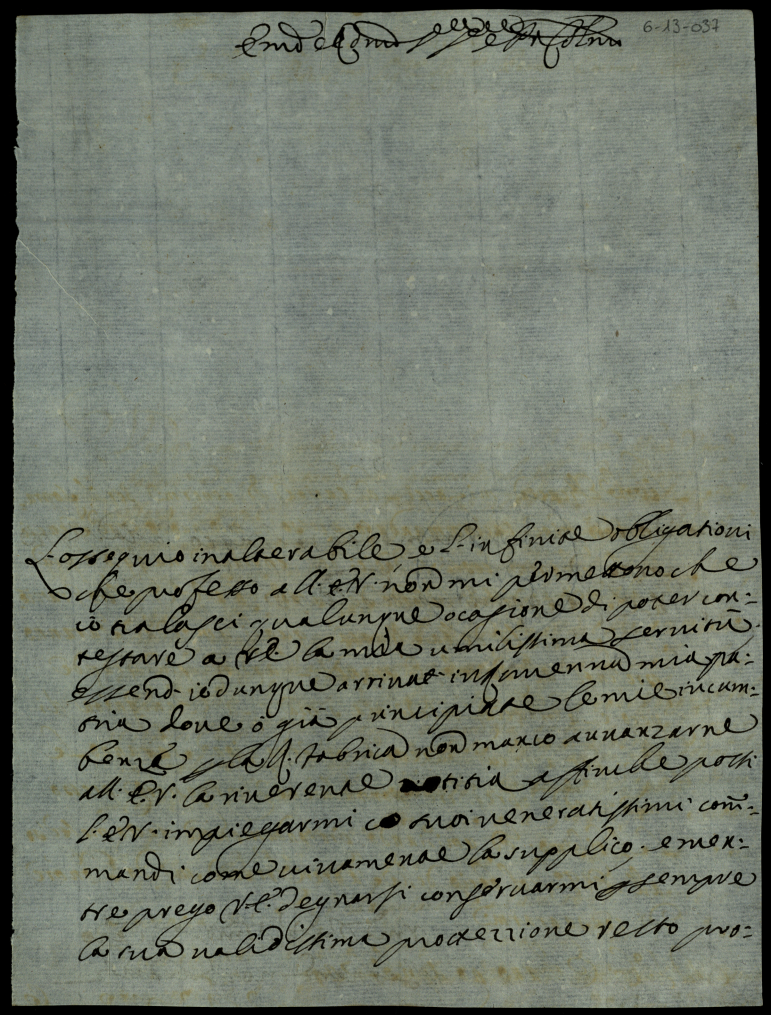 6-13-037
L'ossequio inalterabile, e l'infinite obligationi
che professo all'E.V. non mi permettono che
io tralasci qualunque ocasione di poter con=
testare a V.E. la mia umilissima servitù.
essend'io dunque arrivat in mia pa=
tria dove ò già principiate le mie incum=
benze la fabrica non manco avvanzarne
all'E.V. la riverente notitia affinche possi
l'E.V. impiegarmi co suoi veneratissimi com=
mandi come vivamente la supplico. e men=
tre prego V.E. degnarsi conservarmi sempre
la sua validissima protezzione resto pro=